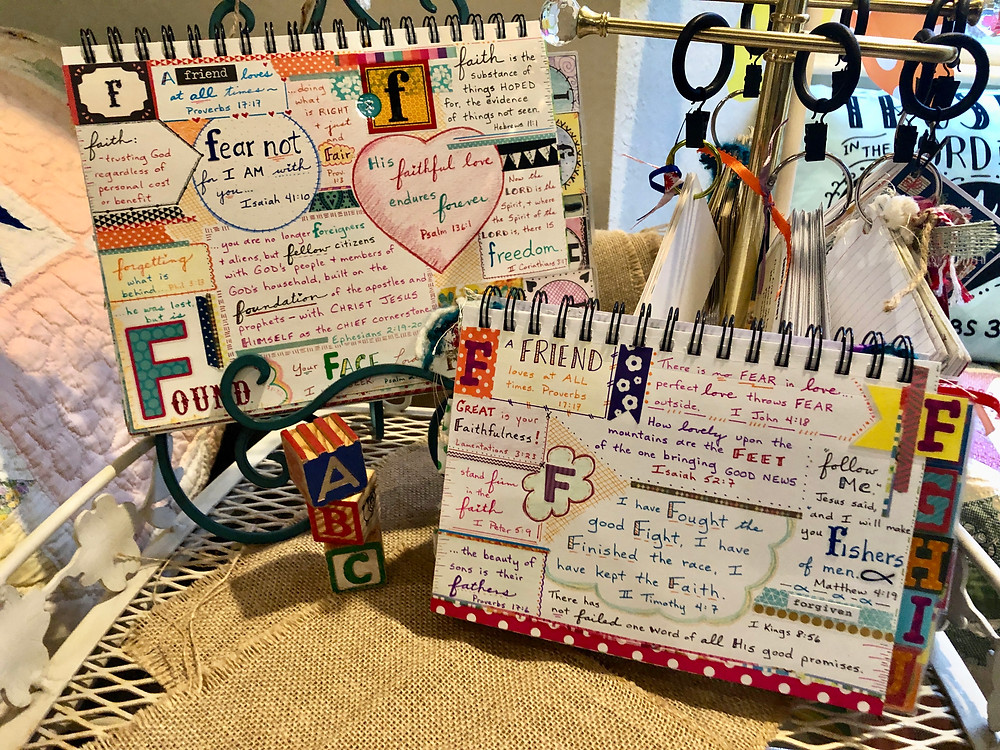 f
A friend loves
at all times~
Proverbs 17:17
doing
what
is RIGHT
+ just
and
Fair
Prov.
1:3
f
faith is the
substance of
things HOPED
for, the evidence
of things not seen.
Hebrews 11:1
faith:
-trusting God
regardless of
personal cost
or benefit
fear not
for I AM with
you...
Isaiah 41:10
His faithful love
endures forever
Psalm 136:1
Now the
LORD is the
Spirit, + where
the Spirit of the
LORD is, there is
freedom.
II Corinthians 3:17
forgetting
what is
behind
Phil 3:13
...you are no longer foreigners
+ aliens, but fellow citizens
with GOD's people + members of
GOD's household, built on the
foundation of the apostles and
prophets - with CHRIST JESUS
HIMSELF as the CHIEF cornerstone
Ephesians 2:19-20
he was lost,
but is
FOUND
Your FACE
I
Psalm
A
B
C
F
A FRIEND
loves at ALL
times. Proverbs
17:17
There is no FEAR in love...
perfect love throws FEAR
outside.
I John 4:18
GREAT is your
Faithfulness!
Lamentations 3:23
How lovely upon the
mountains are the FEET
of the one bringing GOOD NEWS
Isaiah 52:7
F
stand firm
in the
faith
I Peter 5:9
I have Fought the
good Fight, I have
Finished the race, I
have kept the Faith.
II Timothy 4:7
follow
Me-
Jesus said,
and I will make
you fishers
of men.
Matthew 4:19
forgiven
...the beauty of
sons is their
fathers
Proverbs 17:6
There has
not failed one word of all His good promises.
I Kings 8:56
F
G
H
I
J
IN THE